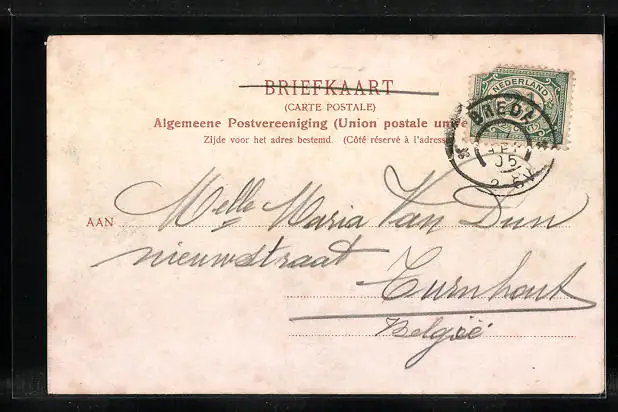 BRIEFKAART
(CARTE POSTALE)
Algemeene Postvereeniging (Union postale unive
Zijde voor het adres bestemd. (Côté réservé à l'adresse
NEDERLAND
BREDA
05
AAN Melle Maria Van Dun
nieuwstraat
Turnhout
België